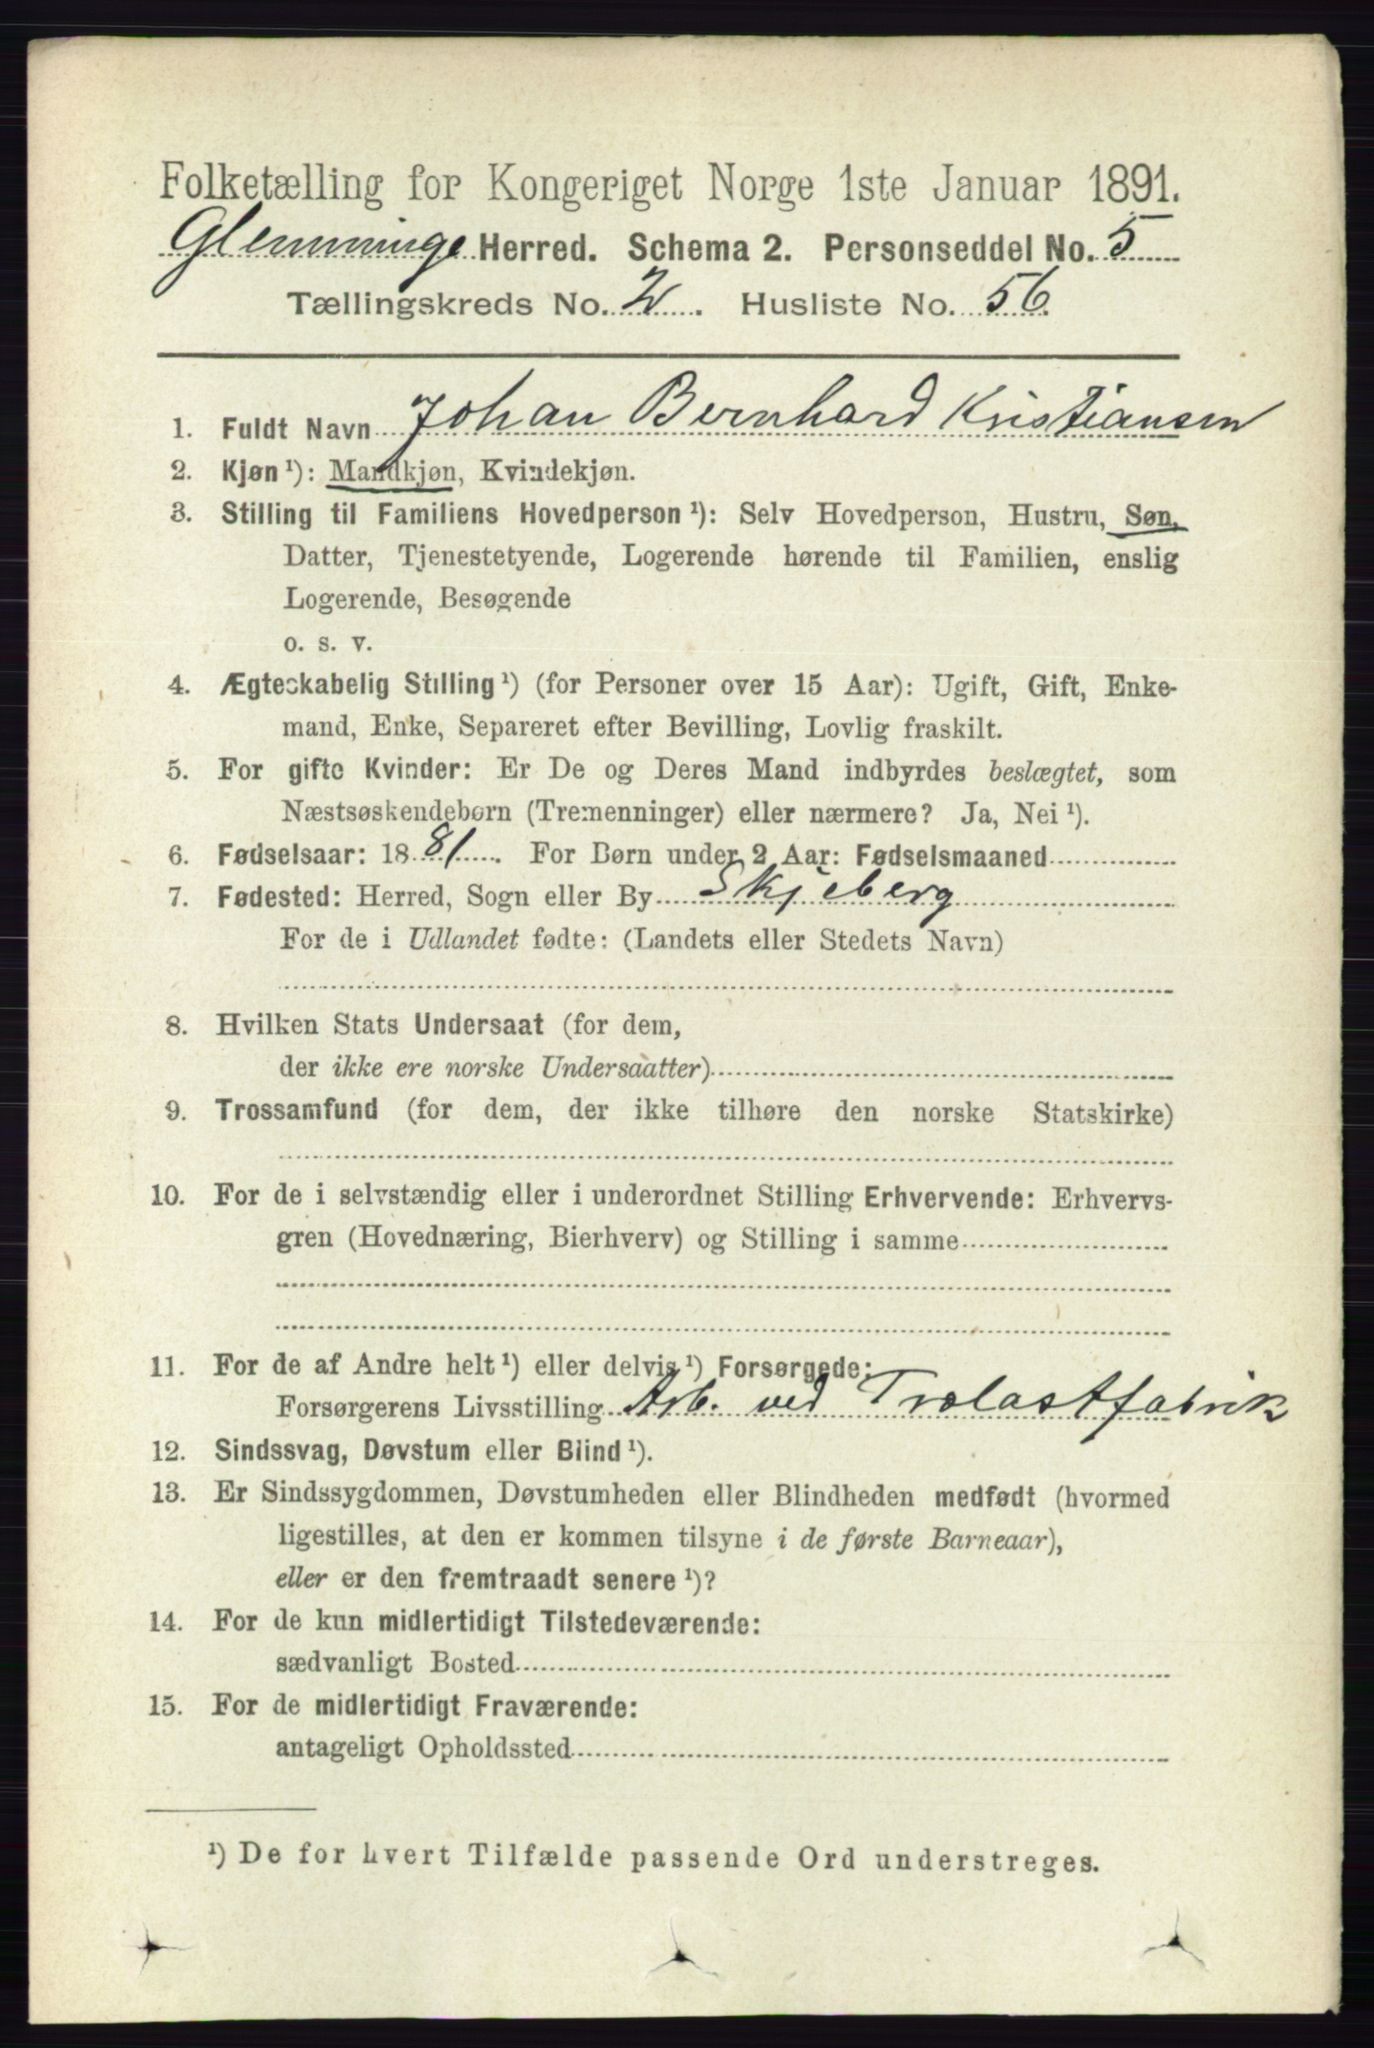 Folketælling for Kongeriget Norge 1ste Januar 1891.
Glemminge Herred. Schema 2. Personseddel No. 5
Tællingskreds No. 2. Husliste No. 56.
1. Fuldt Navn Johan Bernhard Kristiansen
2. Kjøn ¹): Mandkjøn, Kvindekjøn.
3. Stilling til Familiens Hovedperson ¹): Selv Hovedperson, Hustru, Søn,
Datter, Tjenestetyende, Logerende hørende til Familien, enslig
Logerende, Besøgende
o. s. v.
4. Ægteskabelig Stilling ¹) (for Personer over 15 Aar): Ugift, Gift, Enke-
mand, Enke, Separeret efter Bevilling, Lovlig fraskilt.
5. For gifte Kvinder: Er De og Deres Mand indbyrdes beslægtet, som
Næstsøskendebørn (Tremenninger) eller nærmere? Ja, Nei ¹).
6. Fødselsaar: 1881. For Børn under 2 Aar: Fødselsmaaned
7. Fødested: Herred, Sogn eller By Skjeberg
For de i Udlandet fødte: (Landets eller Stedets Navn)
8. Hvilken Stats Undersaat (for dem,
der ikke ere norske Undersaatter)
9. Trossamfund (for dem, der ikke tilhøre den norske Statskirke)
10. For de i selvstændig eller i underordnet Stilling Erhvervende: Erhvervs-
gren (Hovednæring, Bierhverv) og Stilling i samme
11. For de af Andre helt ¹) eller delvis ¹) Forsørgede:
Forsørgerens Livsstilling Arb. ved Trælastfabrik
12. Sindssvag, Døvstum eller Blind ¹).
13. Er Sindssygdommen, Døvstumheden eller Blindheden medfødt (hvormed
ligestilles, at den er kommen tilsyne i de første Barneaar),
eller er den fremtraadt senere ¹)?
14. For de kun midlertidigt Tilstedeværende:
sædvanligt Bosted
15. For de midlertidigt Fraværende:
antageligt Opholdssted
¹) De for hvert Tilfælde passende Ord understreges.